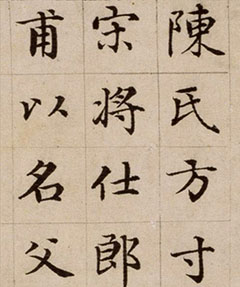 陳氏方寸
宋將仕郎
甫以名父